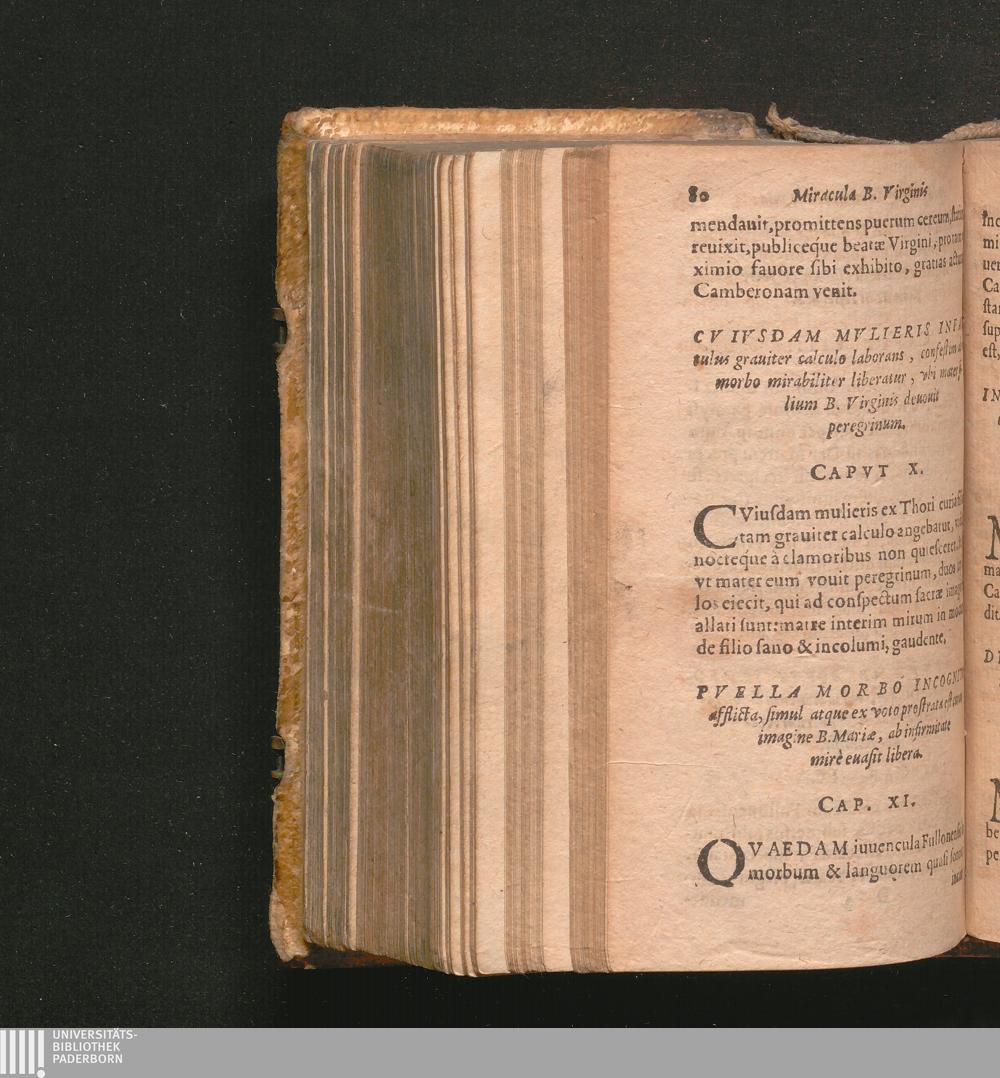 80 Miracula B. Virginis
mendauit, promittens puerum cereum,
reuixit, publiceque beatæ Virgini,
ximio fauore ſibi exhibito, gratias
Camberonam venit.
CVIVSDAM MVLIERIS
tulus grauiter calculo laborans,
morbo mirabiliter liberatur, vbi mater
lium B. Virginis deuouit
peregrinum.
CAPVT X.
CViuſdam mulieris ex Thori
tam grauiter calculo angebatur,
nocteque à clamoribus non quieſceret,
vt mater eum vouit peregrinum, duos
los eiecit, qui ad conſpectum ſacræ
allati ſunt: matre interim mirum in
de filio ſano & incolumi, gaudente.
PVELLA MORBO INCOGNITO
afflicta, ſimul atque ex voto proſtrata eſt
imagine B. Mariæ, ab infirmitate
mirè euaſit libera.
CAP. XI.
QVAEDAM iuuencula
morbum & languorem quaſi
mi
Ca
ſup
eſt,
IN
ma
Ca
dit.
be
pe
UNIVERSITÄTS-
BIBLIOTHEK
PADERBORN